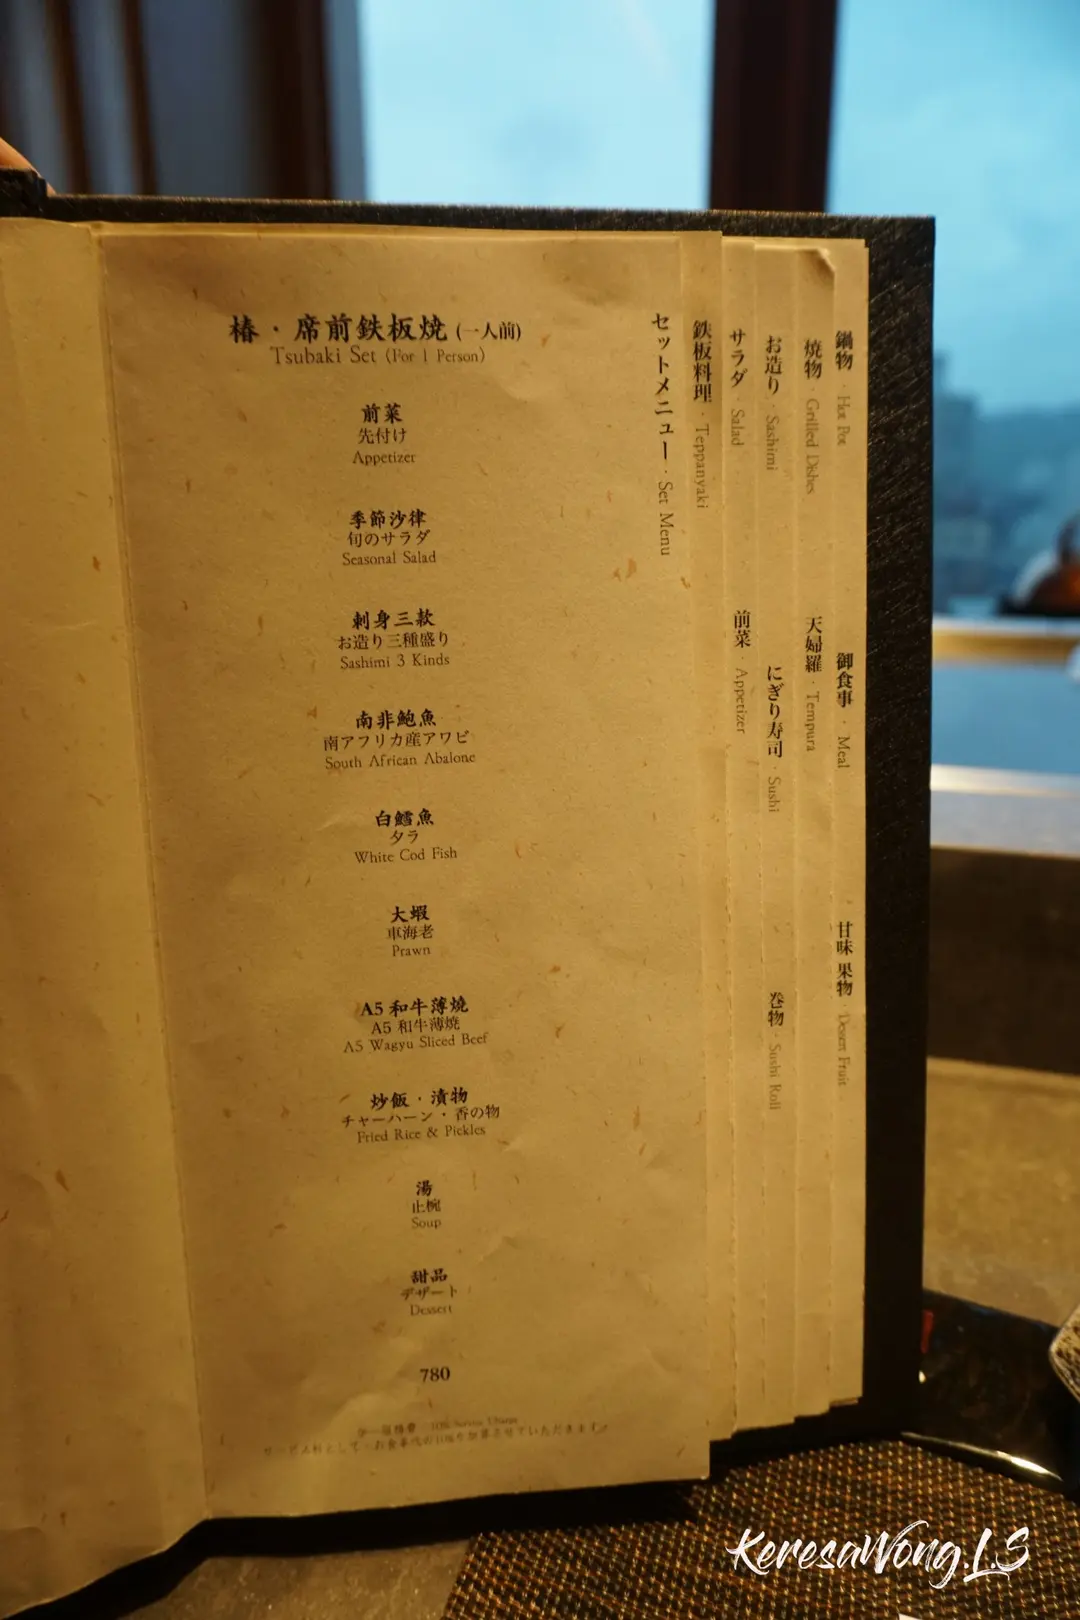 椿・席前鉄板焼 (一人前)
Tsubaki Set (For 1 Person)
前菜
先付け
Appetizer
季節沙律
旬のサラダ
Seasonal Salad
刺身三款
お造り三種盛り
Sashimi 3 Kinds
南非鮑魚
南アフリカ産アワビ
South African Abalone
白鱈魚
タラ
White Cod Fish
大蝦
車海老
Prawn
A5 和牛薄燒
A5 和牛薄焼
A5 Wagyu Sliced Beef
炒飯・漬物
チャーハーン・香の物
Fried Rice & Pickles
湯
止椀
Soup
甜品
デザート
Dessert
780
加一服務費 10% Service Charge
サービス料として、お食事代の10%を加算させていただきます。
セットメニュー・Set Menu
鉄板料理・Teppanyaki
サラダ・Salad
前菜・Appetizer
お造り・Sashimi
にぎり寿司・Sushi
巻物・Sushi Roll
焼物・Grilled Dishes
天婦羅・Tempura
鍋物・Hot Pot
御食事・Meal
甘味 果物・Dessert Fruit
KeresaWong.L.S